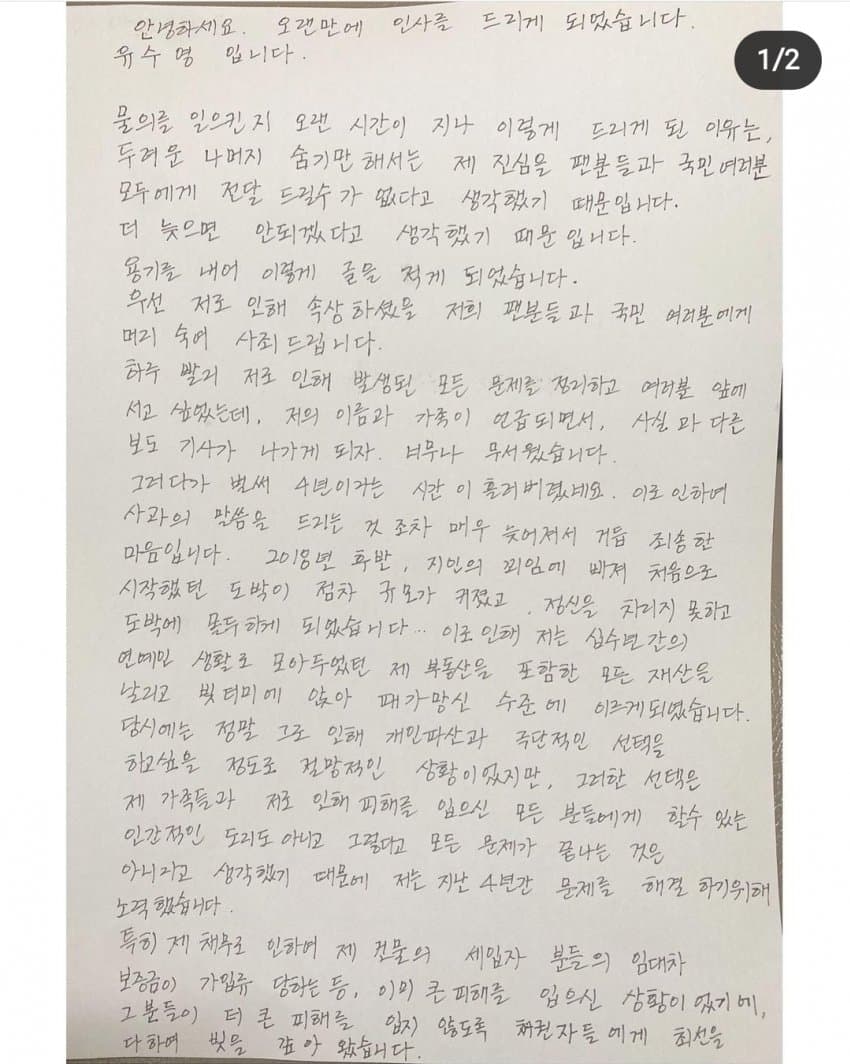 안녕하세요. 오랜만에 인사를 드리게 되었습니다.
유수영 입니다.
1/2
물의를 일으킨지 오랜 시간이 지나 이렇게 드리게 된 이유는,
두려운 나머지 숨기만해서는 제 진심을 팬분들과 국민여러분
모두에게 전달 드릴수가 없다고 생각했기 때문입니다.
더 늦으면 안되겠다고 생각했기 때문입니다.
용기를 내어 이렇게 글을 적게 되었습니다.
우선 저로 인해 속상하셨을 저희 팬분들과 국민 여러분에게
머리 숙여 사죄드립니다.
하루 빨리 저로 인해 발생된 모든 문제를 정리하고 여러분 앞에
서고 싶었는데, 저의 이름과 가족이 언급되면서, 사실과 다른
보도 기사가 나가게 되자. 너무나 무서웠습니다.
그러다가 벌써 4년이라는 시간이 흘러버렸네요. 이로인하여
사과의 말씀을 드리는 것 조차 매우 늦어져서 거듭 죄송한
마음입니다. 2018년 후반, 지인의 꾀임에 빠져 처음으로
시작했던 도박이 점차 규모가 커졌고, 정신을 차리지 못하고
도박에 몰두하게 되었습니다... 이로인해 저는 십수년간의
연예인 생활로 모아두었던 제 부동산을 포함한 모든 재산을
날리고 빚더미에 앉아 패가망신 수준에 이르게되었습니다.
당시에는 정말 그로 인해 개인파산과 극단적인 선택을
하고싶을 정도로 절망적인 상황이었지만, 그러한 선택은
제 가족들과 저로 인해 피해를 입으신 모든 분들에게 할수 있는
인간적인 도리도 아니고 그렇다고 모든 문제가 끝나는 것은
아니라고 생각했기 때문에 저는 지난 4년간 문제를 해결 하기위해
노력했습니다.
특히 제 채무로 인하여 제 건물의 세입자 분들의 임대차
보증금이 가압류 당하는 등, 이미 큰 피해를 입으신 상황이었기에,
그 분들이 더 큰 피해를 입지 않도록 채권자들에게 최선을
다하여 빚을 갚아 왔습니다.